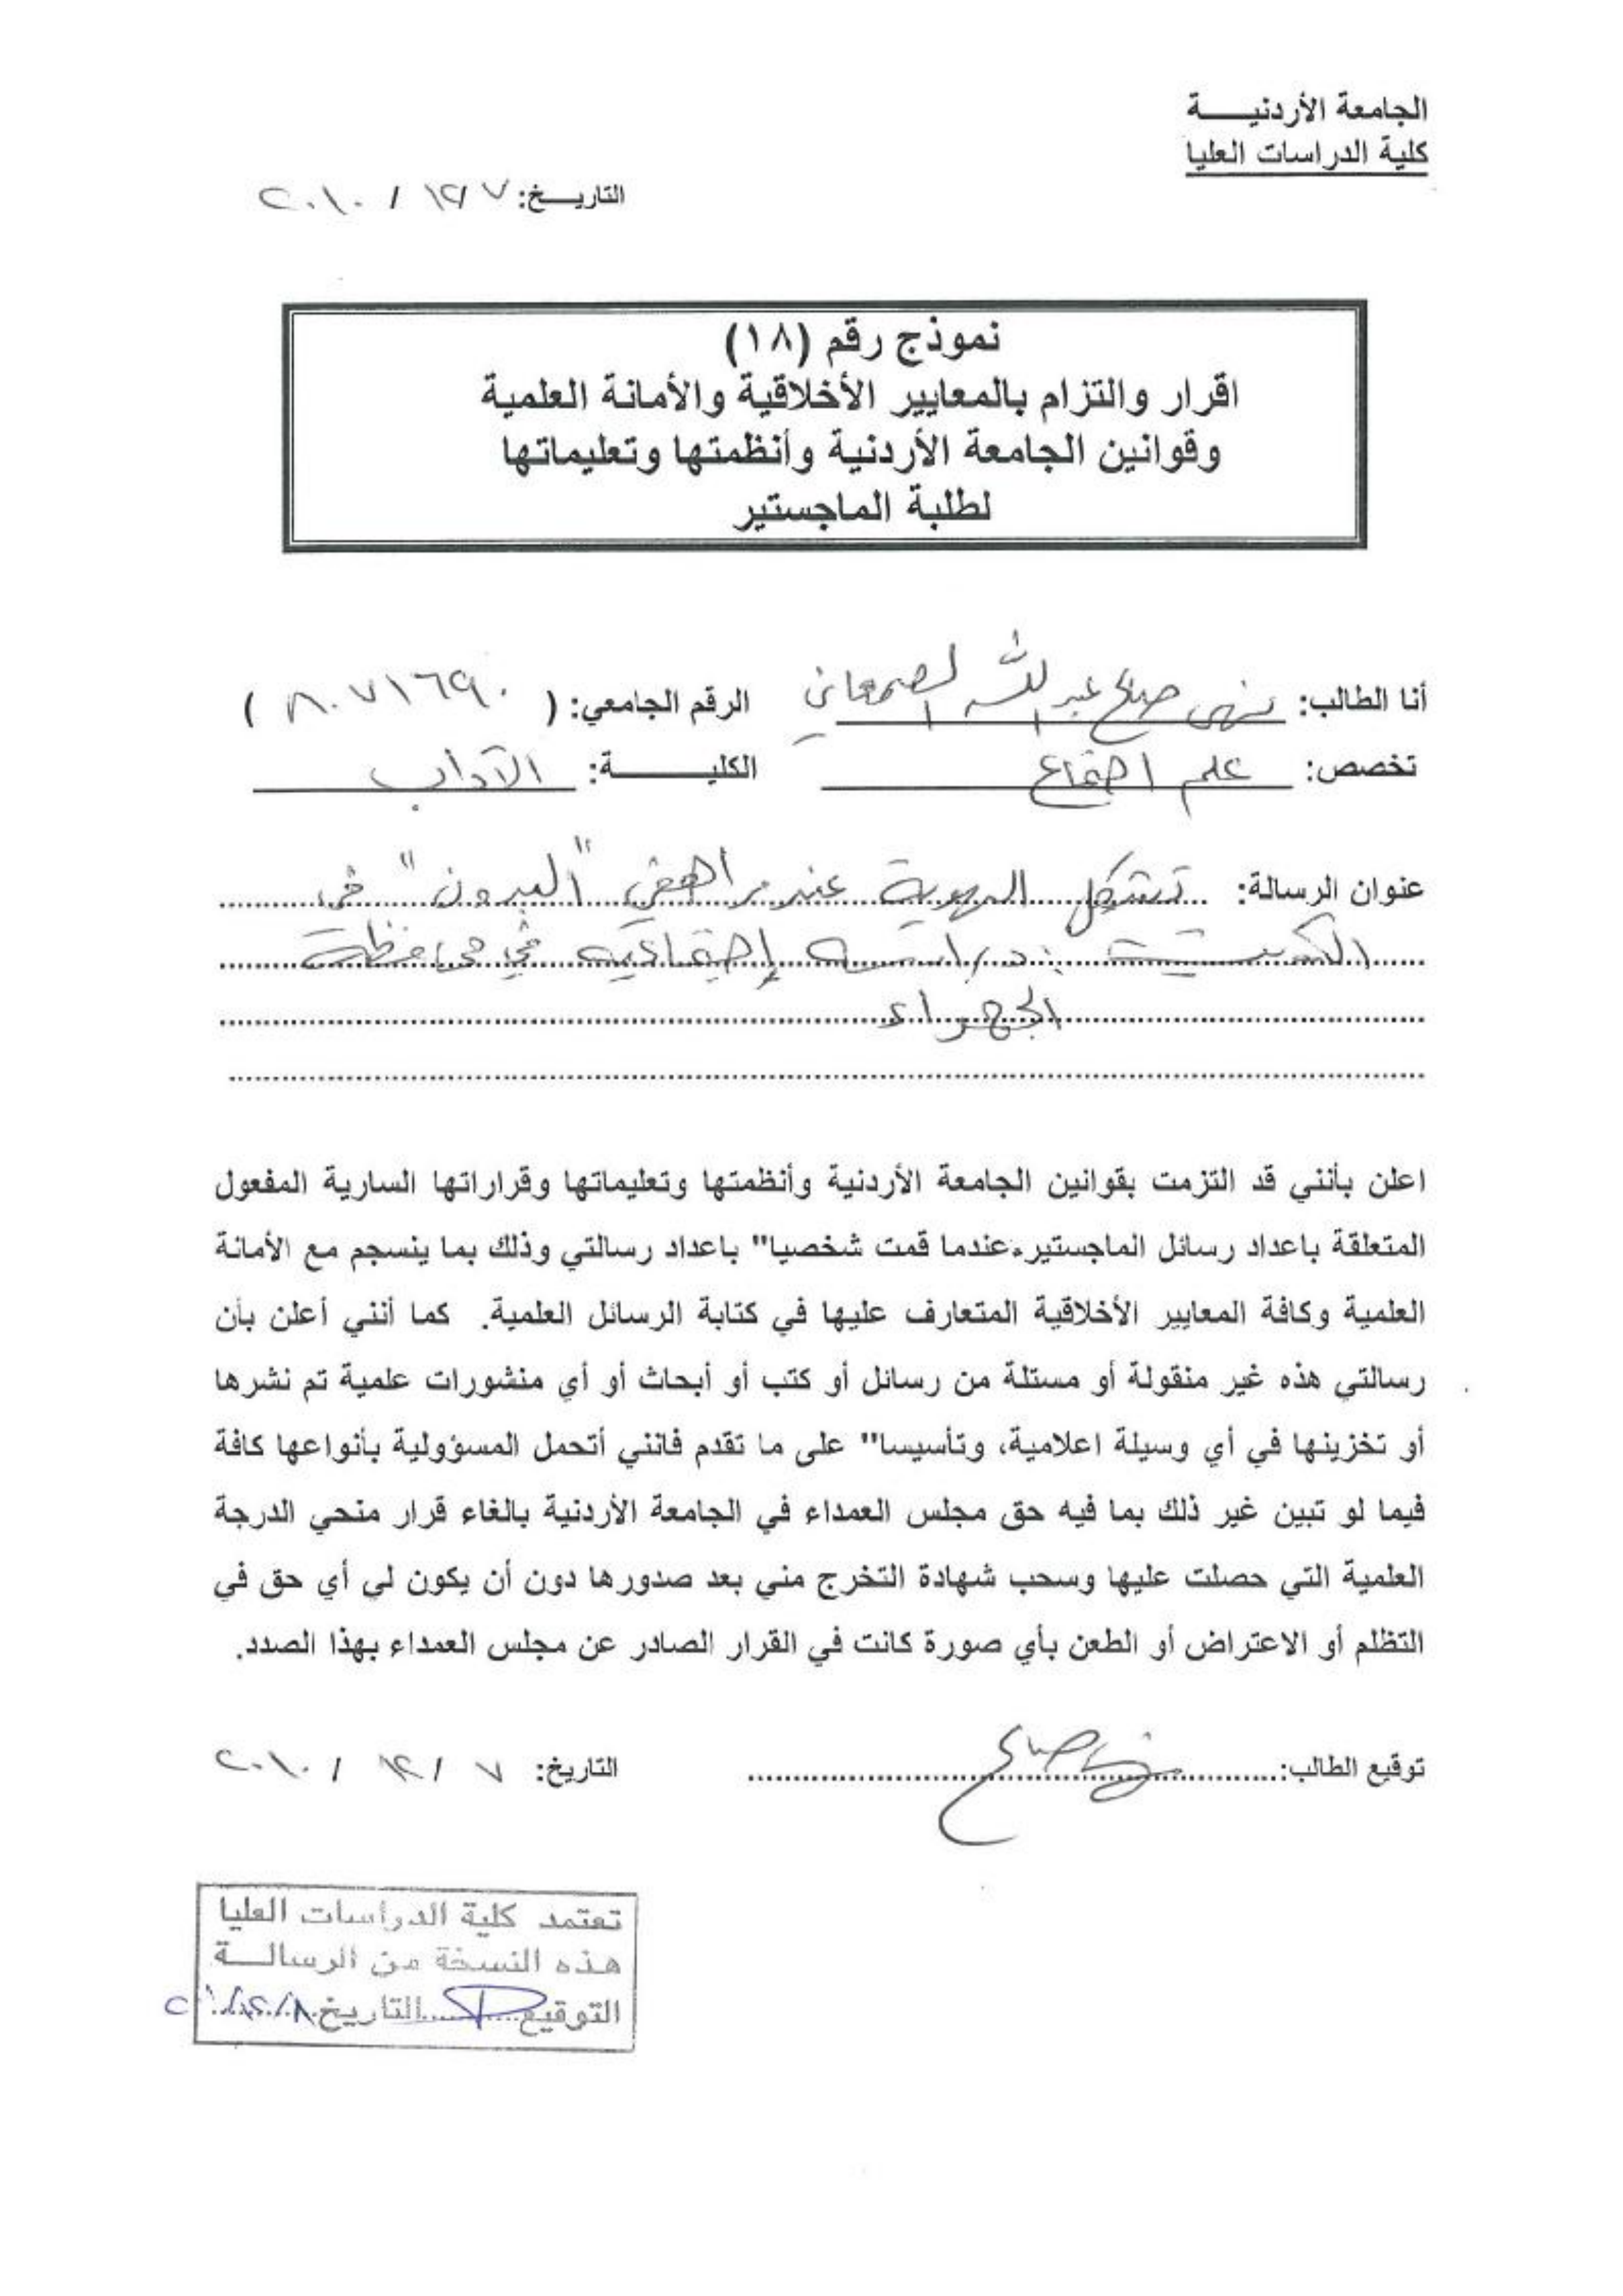 الجامعة الأردنيـــــة
كلية الدراسات العليا
التاريـــخ: ٧ /١٢ / ٢٠١٠
نموذج رقم (١٨)
اقرار والتزام بالمعايير الأخلاقية والأمانة العلمية
وقوانين الجامعة الأردنية وأنظمتها وتعليماتها
لطلبة الماجستير
أنا الطالب: نهى صلاح عبد الله الصمعاني الرقم الجامعي: ( ٨٠٧١٦٩٠ )
تخصص: علم اجتماع الكليـــــــة: الآداب
عنوان الرسالة: تشكل الهوية عند مراهقي "البدون" في
الكويت : دراسة إجتماعية في محافظة
الجهراء
اعلن بأنني قد التزمت بقوانين الجامعة الأردنية وأنظمتها وتعليماتها وقراراتها السارية المفعول
المتعلقة باعداد رسائل الماجستير عندما قمت شخصيا" باعداد رسالتي وذلك بما ينسجم مع الأمانة
العلمية وكافة المعايير الأخلاقية المتعارف عليها في كتابة الرسائل العلمية. كما أنني أعلن بأن
رسالتي هذه غير منقولة أو مستلة من رسائل أو كتب أو أبحاث أو أي منشورات علمية تم نشرها
أو تخزينها في أي وسيلة اعلامية، وتأسيسا" على ما تقدم فانني أتحمل المسؤولية بأنواعها كافة
فيما لو تبين غير ذلك بما فيه حق مجلس العمداء في الجامعة الأردنية بالغاء قرار منحي الدرجة
العلمية التي حصلت عليها وسحب شهادة التخرج مني بعد صدورها دون أن يكون لي أي حق في
التظلم أو الاعتراض أو الطعن بأي صورة كانت في القرار الصادر عن مجلس العمداء بهذا الصدد.
توقيع الطالب: التاريخ: ٧ / ١٢ / ٢٠١٠
تعتمد كلية الدراسات العليا
هذه النسخة من الرسالـــة
التوقيع التاريخ